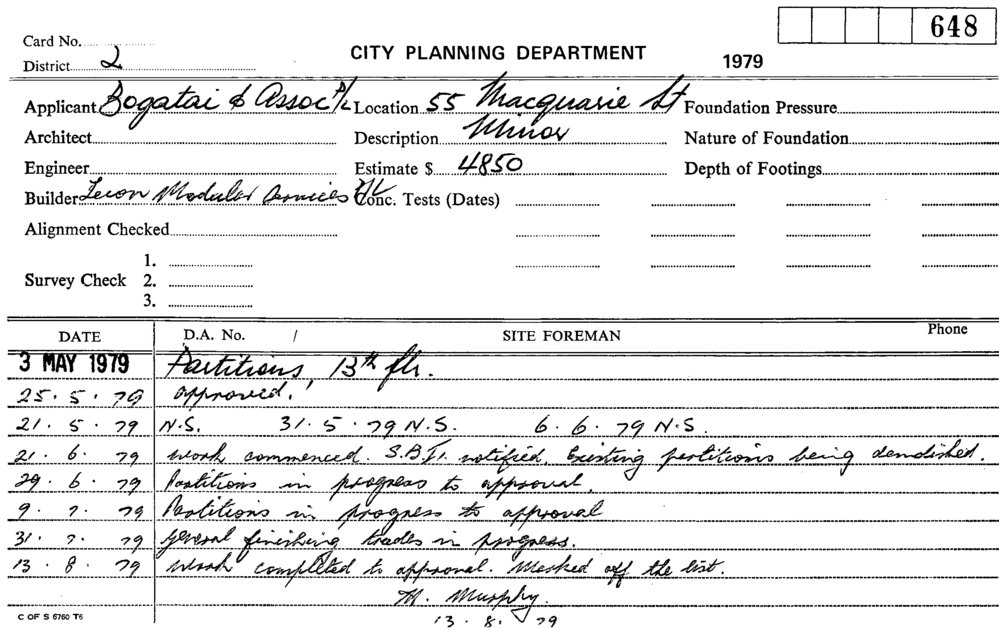 648
Card No.
CITY PLANNING DEPARTMENT 1979
District 2
Applicant Bogatai & Assoc P/L Location 55 Macquarie St Foundation Pressure
Architect Description Minor Nature of Foundation
Engineer Estimate $ 4850 Depth of Footings
Builder Modular Services P/L Conc. Tests (Dates)
Alignment Checked
1.
Survey Check 2.
3.
DATE D.A. No. / SITE FOREMAN Phone
3 MAY 1979 Partitions, 13th flr.
25.5.79 approved.
21.5.79 N.S. 31.5.79 N.S. 6.6.79 N.S.
21.6.79 work commenced. notified. Existing partitions being demolished.
29.6.79 Partitions in progress to approval.
9.7.79 Partitions in progress to approval
31.7.79 General finishing trades in progress.
13.8.79 work completed to approval. Marked off the list.
M. Murphy.
C OF S 6760 T6 13.8.79